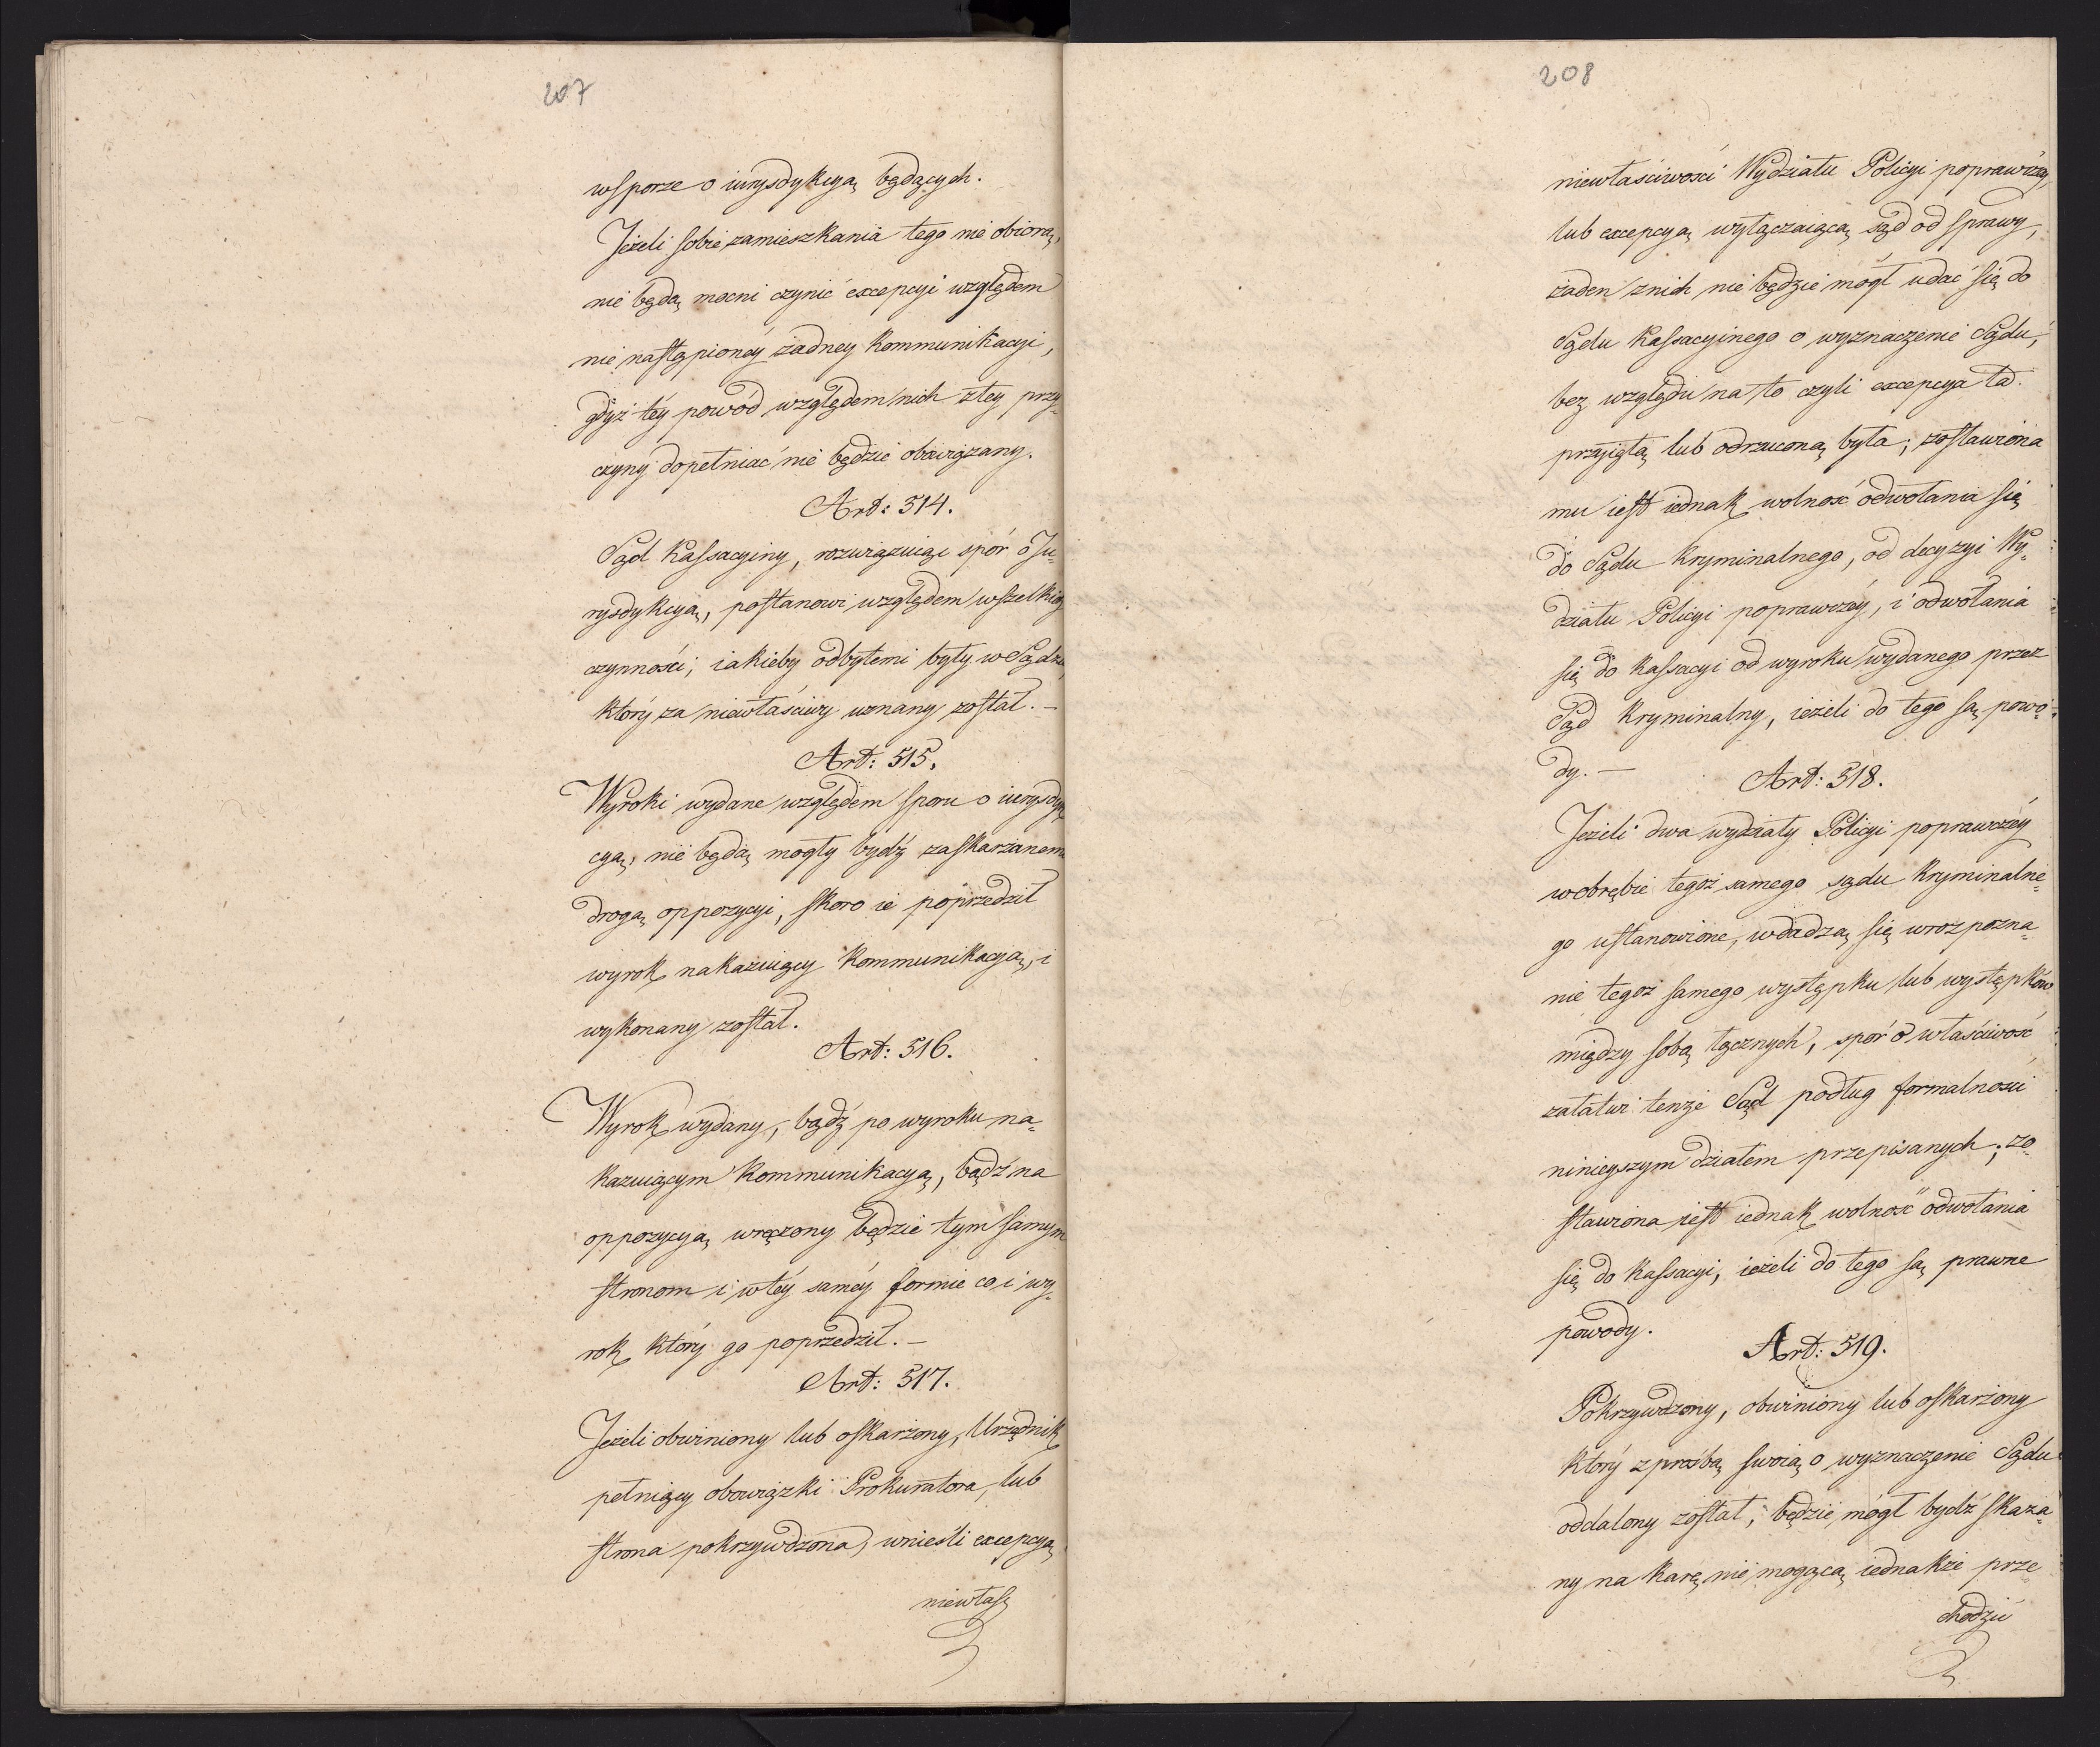 207
wsporze o iurysdykcyą będących.
Jeżeli sobie zamieszkania tego nie obiorą,
nie będą mocni czynić excepcyi względem
nie nastąpionéy żadney kommunikacyi,
gdyż téy powód względem nich z tey przy-
czyny dopełniać nie będzie obowiązany.
Art: 514.
Sąd Kassacyiny, rozwiązuiąc spór o Ju-
rysdykcyą, postanowi względem wszelkiey
czynności, iakieby odbytemi były w Sądzie,
który za niewłaściwy uznany został. —
Art: 515.
Wyroki wydane względem sporu o iurysdyk
cyą, nie będą mogły bydź zaskarżanemi
drogą oppozycyi, skoro ie poprzedził
wyrok nakazuiący kommunikacyą, i
wykonany został.
Art: 516.
Wyrok wydany, bądź po wyroku na-
kazuiącym kommunikacyą, bądź na
oppozycyą wręczony będzie tym samym
stronom i w téy saméy formie co i wy-
rok który go poprzedził. —
Art: 517.
Jeżeli obwiniony lub oskarżony, Urzędnik
pełniący obowiązki Prokuratora, lub
strona pokrzywdzona, wnieśli excepcyą
niewłaś
208
niewłaściwości Wydziału Policyi poprawczéy,
lub excepcyą wyłączaiącą sąd od sprawy,
żaden z nich nie będzie mógł udać się do
Sądu Kassacyinego o wyznaczenie Sądu,
bez względu na to czyli excepcya ta
przyiętą lub odrzuconą była; zostawiona
mu iest iednak wolność odwołania się
do Sądu Kryminalnego, od decyzyi Wy-
działu Policyi poprawczéy, i odwołania
się do Kassacyi od wyroku wydanego przez
Sąd Kryminalny, ieżeli do tego są powo-
dy. —
Art: 518.
Jeżeli dwa wydziały Policyi poprawczéy
w obrębie tegoż samego sądu Kryminalne-
go ustanowione, wdadzą się w rozpozna-
nie tegoż samego występku lub występków
między sobą łącznych, spór o właściwość
załatwi tenże Sąd podług formalności
ninieyszym działem przepisanych; zo-
stawiona iest iednak wolność odwołania
się do Kassacyi, ieżeli do tego są prawne
powody.
Art: 519.
Pokrzywdzony, obwiniony lub oskarżony
który z prośbą swoią o wyznaczenie Sądu
oddalony został, będzie mógł bydź skaza-
ny na karę nie mogącą iednakże prze
chodzić